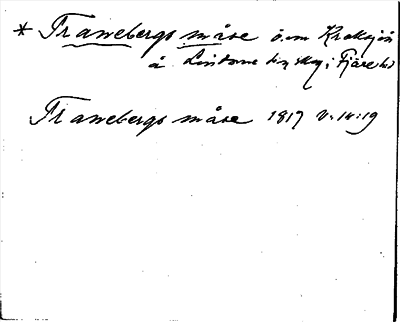 * Tranebergs måse ö. om Kroksjön
å Lindome by skog i Fjäre hd
Tranebergs måse 1817 V: 14:19